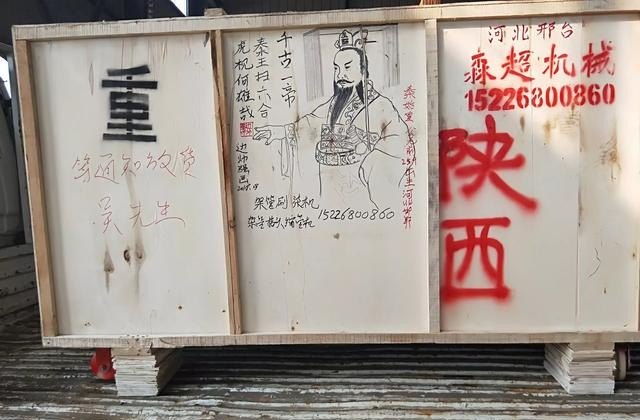 重
等通知放货
吴先生
千古一帝
秦王扫六合
虎机何雄哉
秦始皇
架管刷漆机
15226800860
河北邢台
森超机械
15226800860
陕西